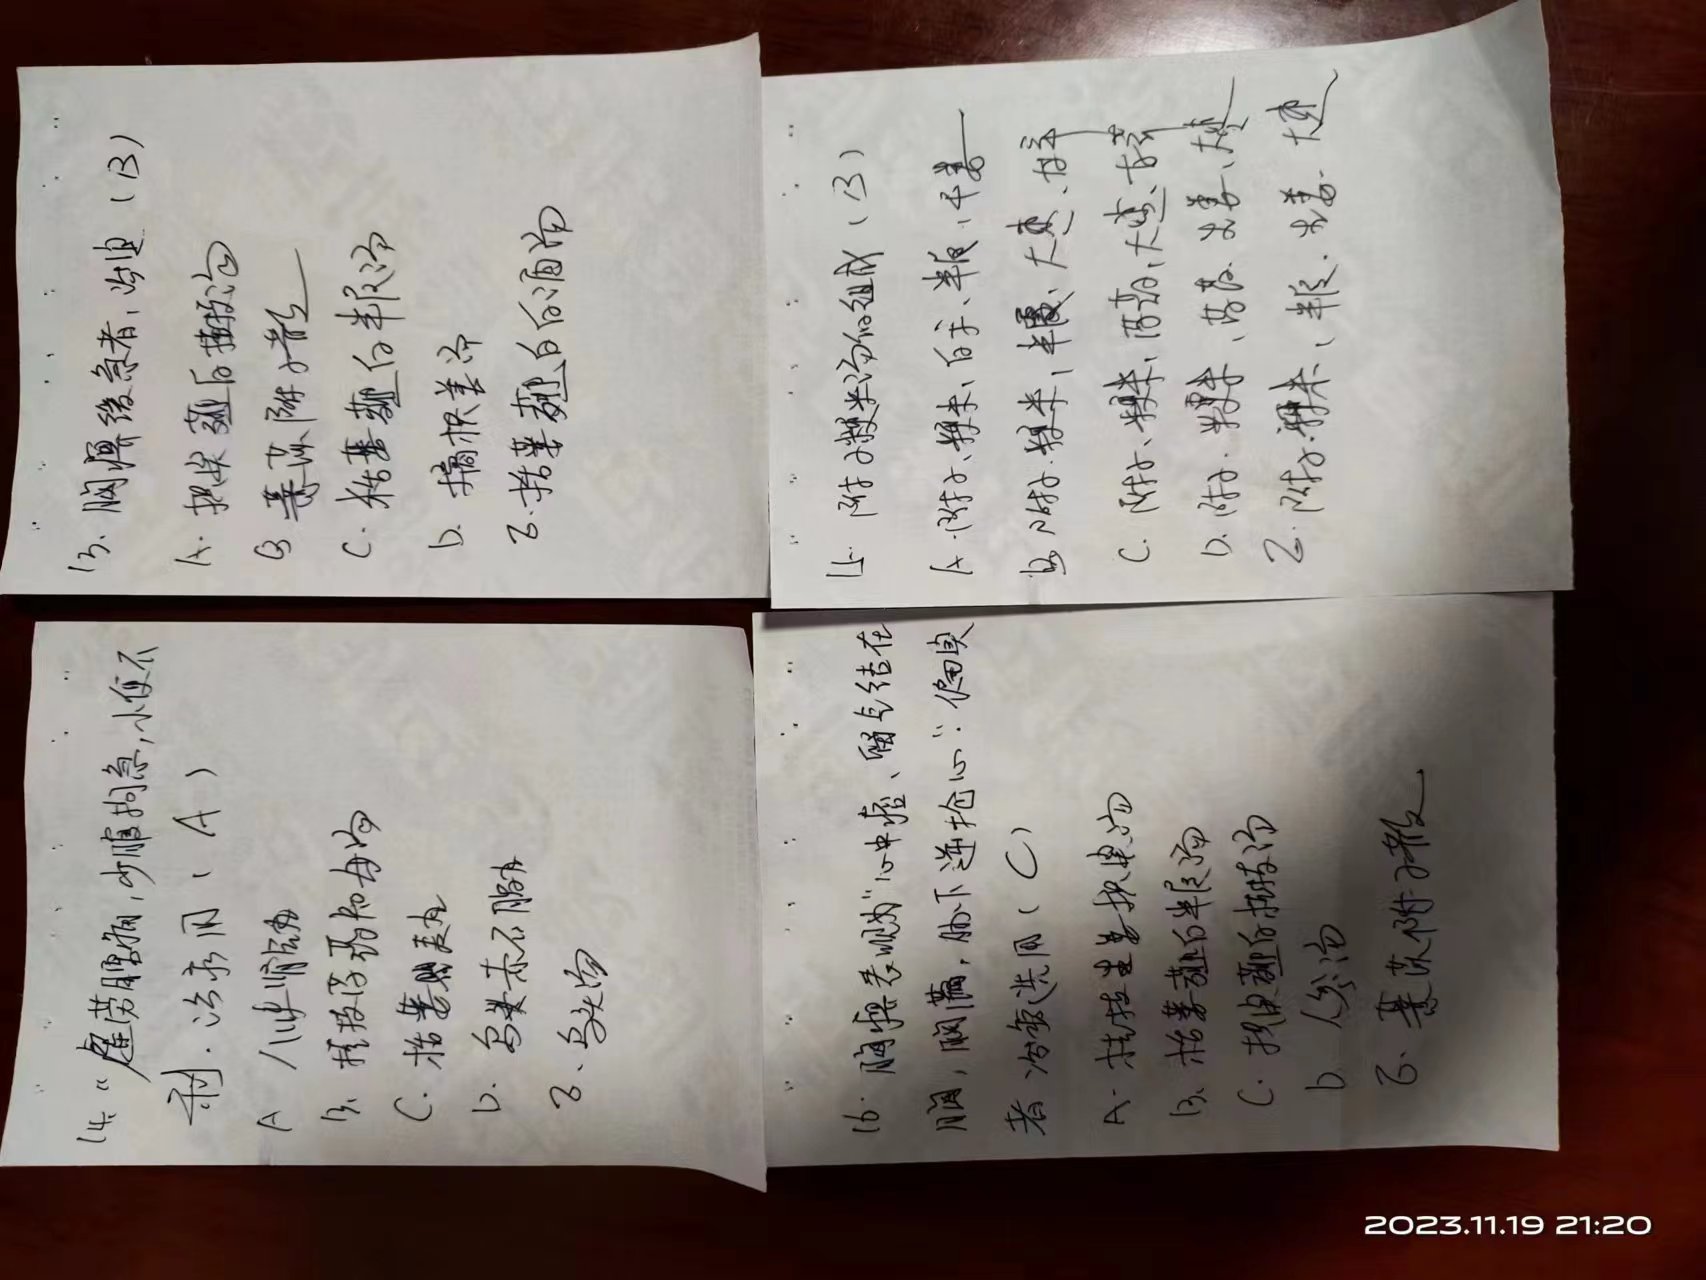 14. “虚劳腰痛,少腹拘急,小便不
利.治疗用(A)
A 八味肾气丸
B. 桂枝芍药知母汤
C. 栝蒌瞿麦丸
D. 乌头赤石脂丸
E. 乌头汤
13. 胸痹缓急者,治宜(B)
A. 枳实薤白桂枝汤
B 薏苡附子散
C. 栝蒌薤白半夏汤
D. 橘枳姜汤
E. 栝蒌薤白白酒汤
16. 胸痹表现为“心中痞、留气结在
胸,胸满,胁下逆抢心”.偏实
者治疗选用(C)
A. 桂枝生姜枳实汤
B. 栝蒌薤白半夏汤
C. 枳实薤白桂枝汤
D 人参汤
E. 薏苡附子散
15. 附子粳米汤的组成(B)
A. 附子、粳米、白术、半夏、干姜
B. 附子.粳米,半夏、大枣、甘草
C. 附子、粳米,芍药,大枣、甘草
D. 附子.粳米,芍药.生姜、大枣
E. 附子.粳米,半夏.生姜.大枣
2023.11.19 21:20